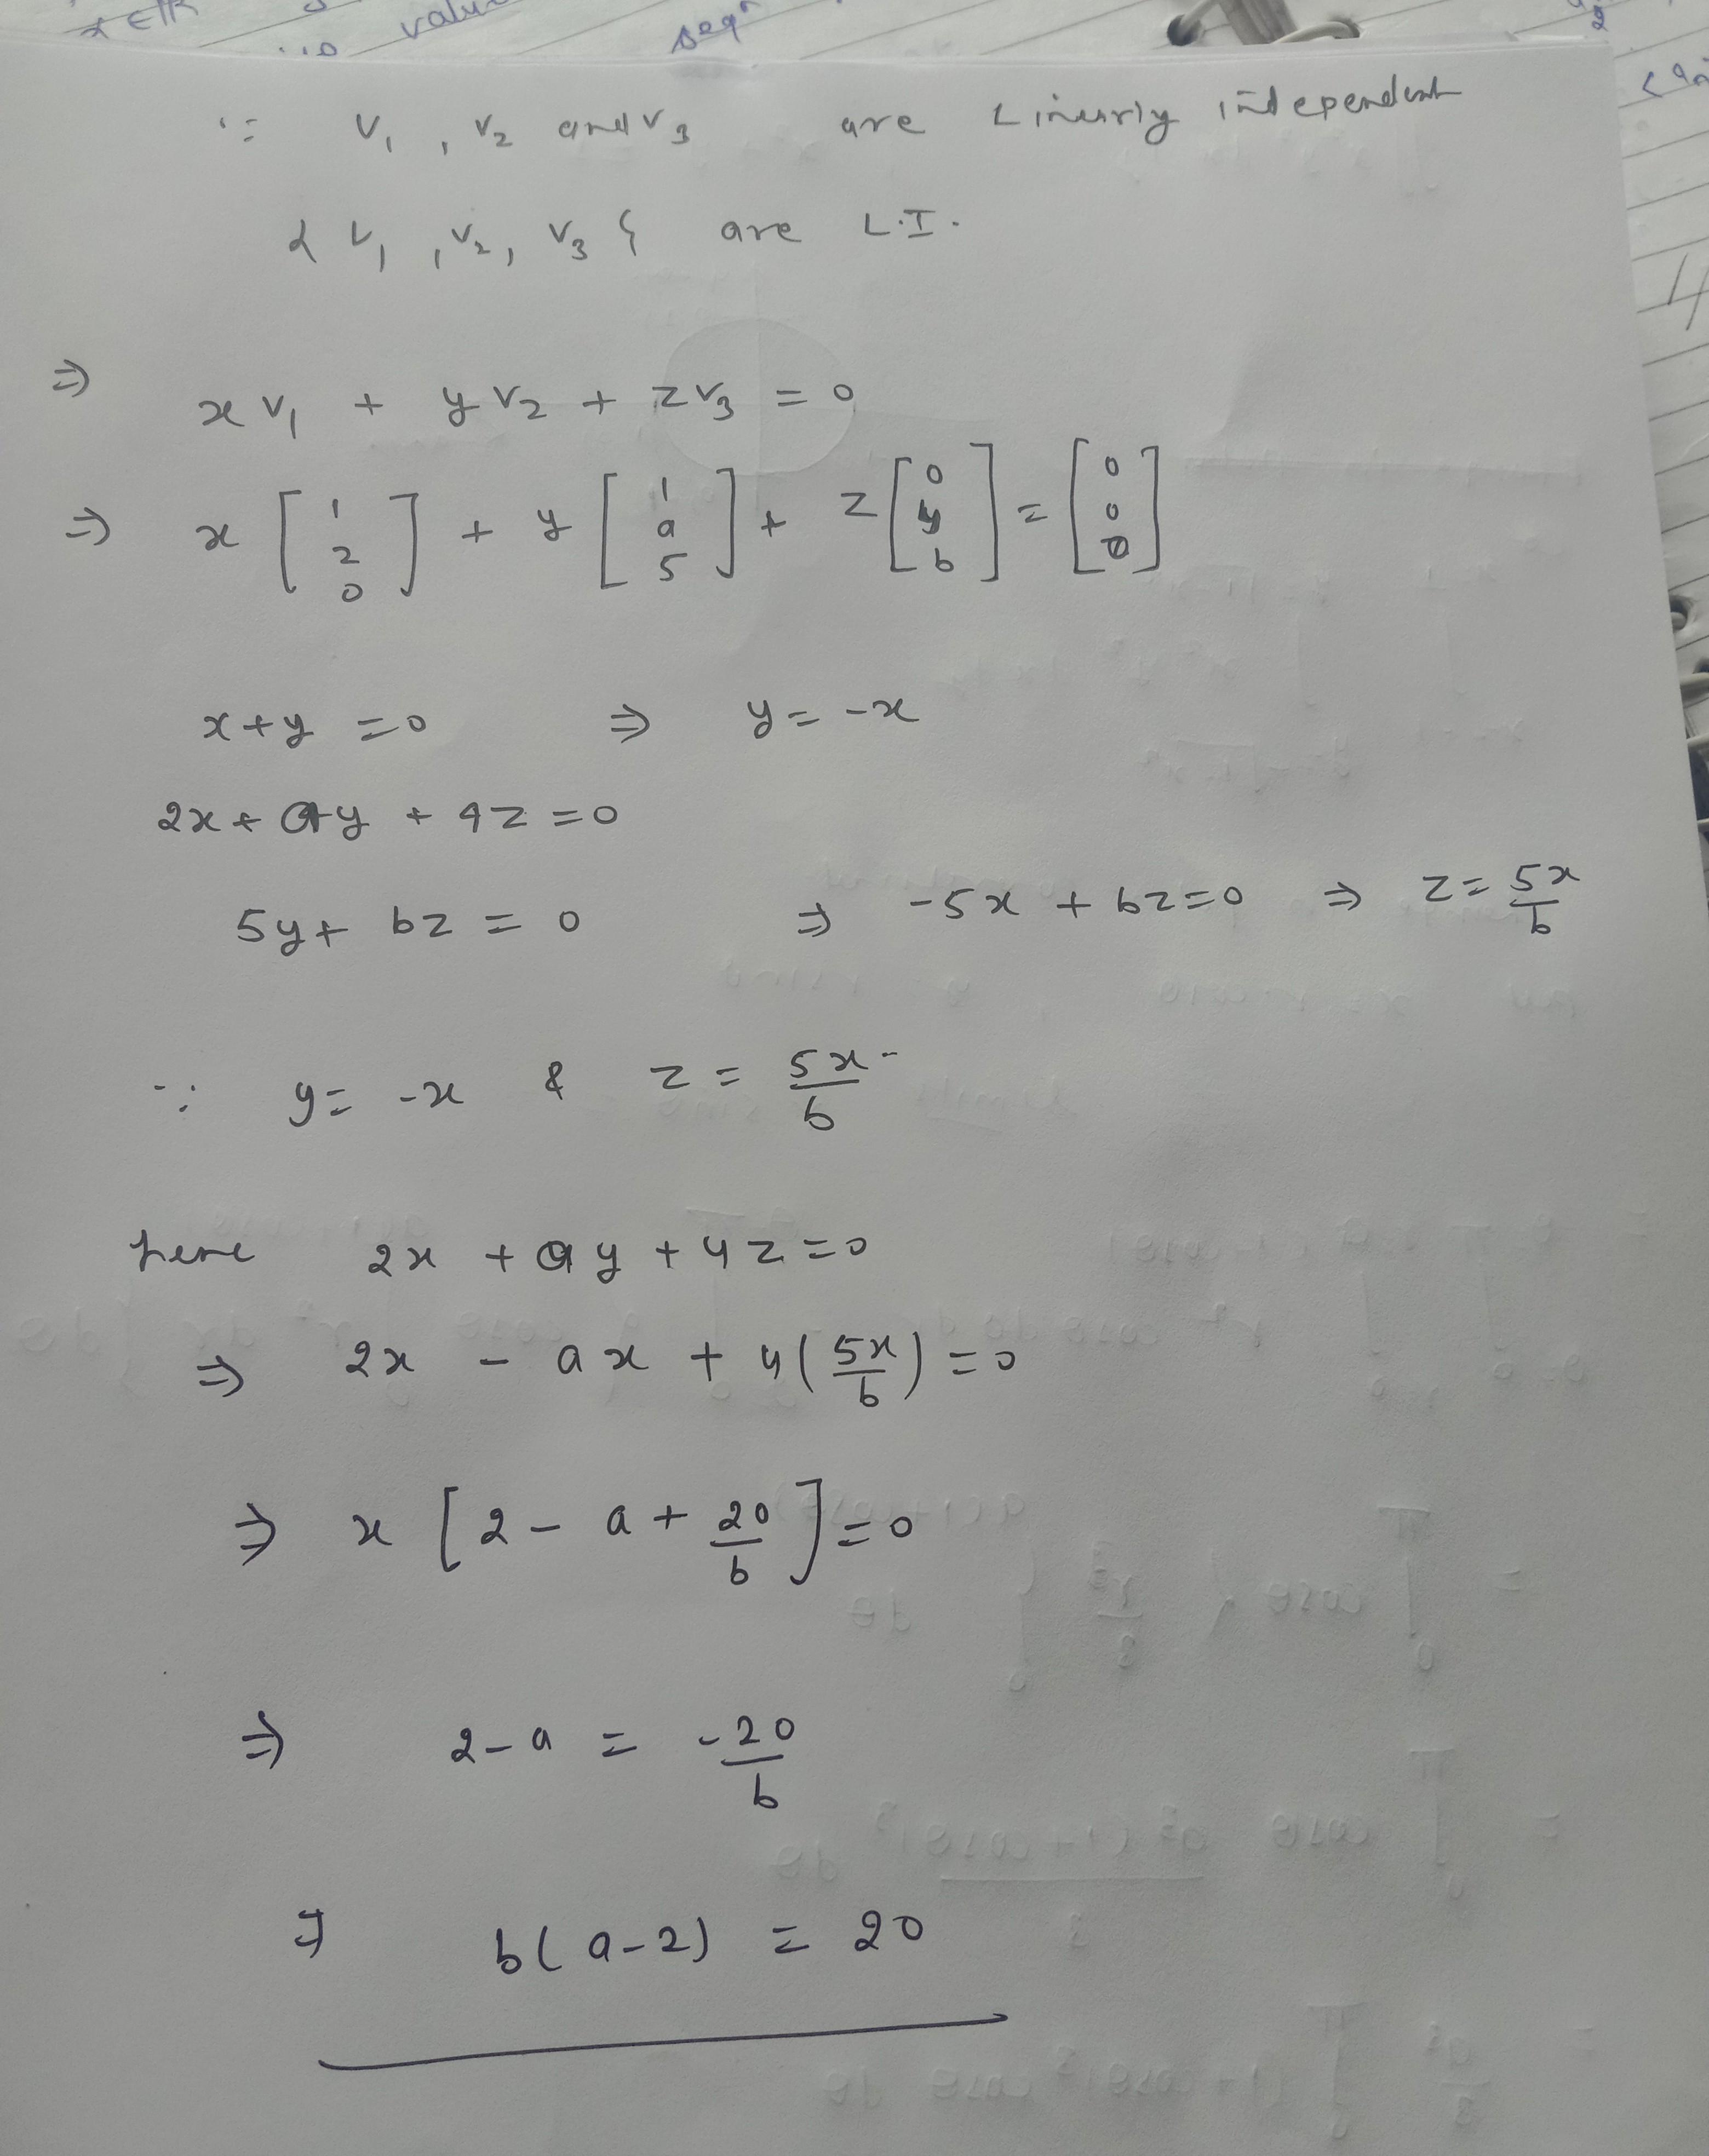 x ∈ ℝ
valu
seqⁿ
∵ V₁, V₂ and V₃ are Linearly independent
{ V₁, V₂, V₃ } are L.I.
⇒ x V₁ + y V₂ + z V₃ = 0
⇒ x [1 2 0] + y [1 a 5] + z [0 4 b] = [0 0 0]
x + y = 0 ⇒ y = -x
2x + ay + 4z = 0
5y + bz = 0 ⇒ -5x + bz = 0 ⇒ z = 5x/b
∵ y = -x & z = 5x/b
here 2x + ay + 4z = 0
⇒ 2x - ax + 4(5x/b) = 0
⇒ x [2 - a + 20/b] = 0
⇒ 2 - a = -20/b
⇒ b(a-2) = 20